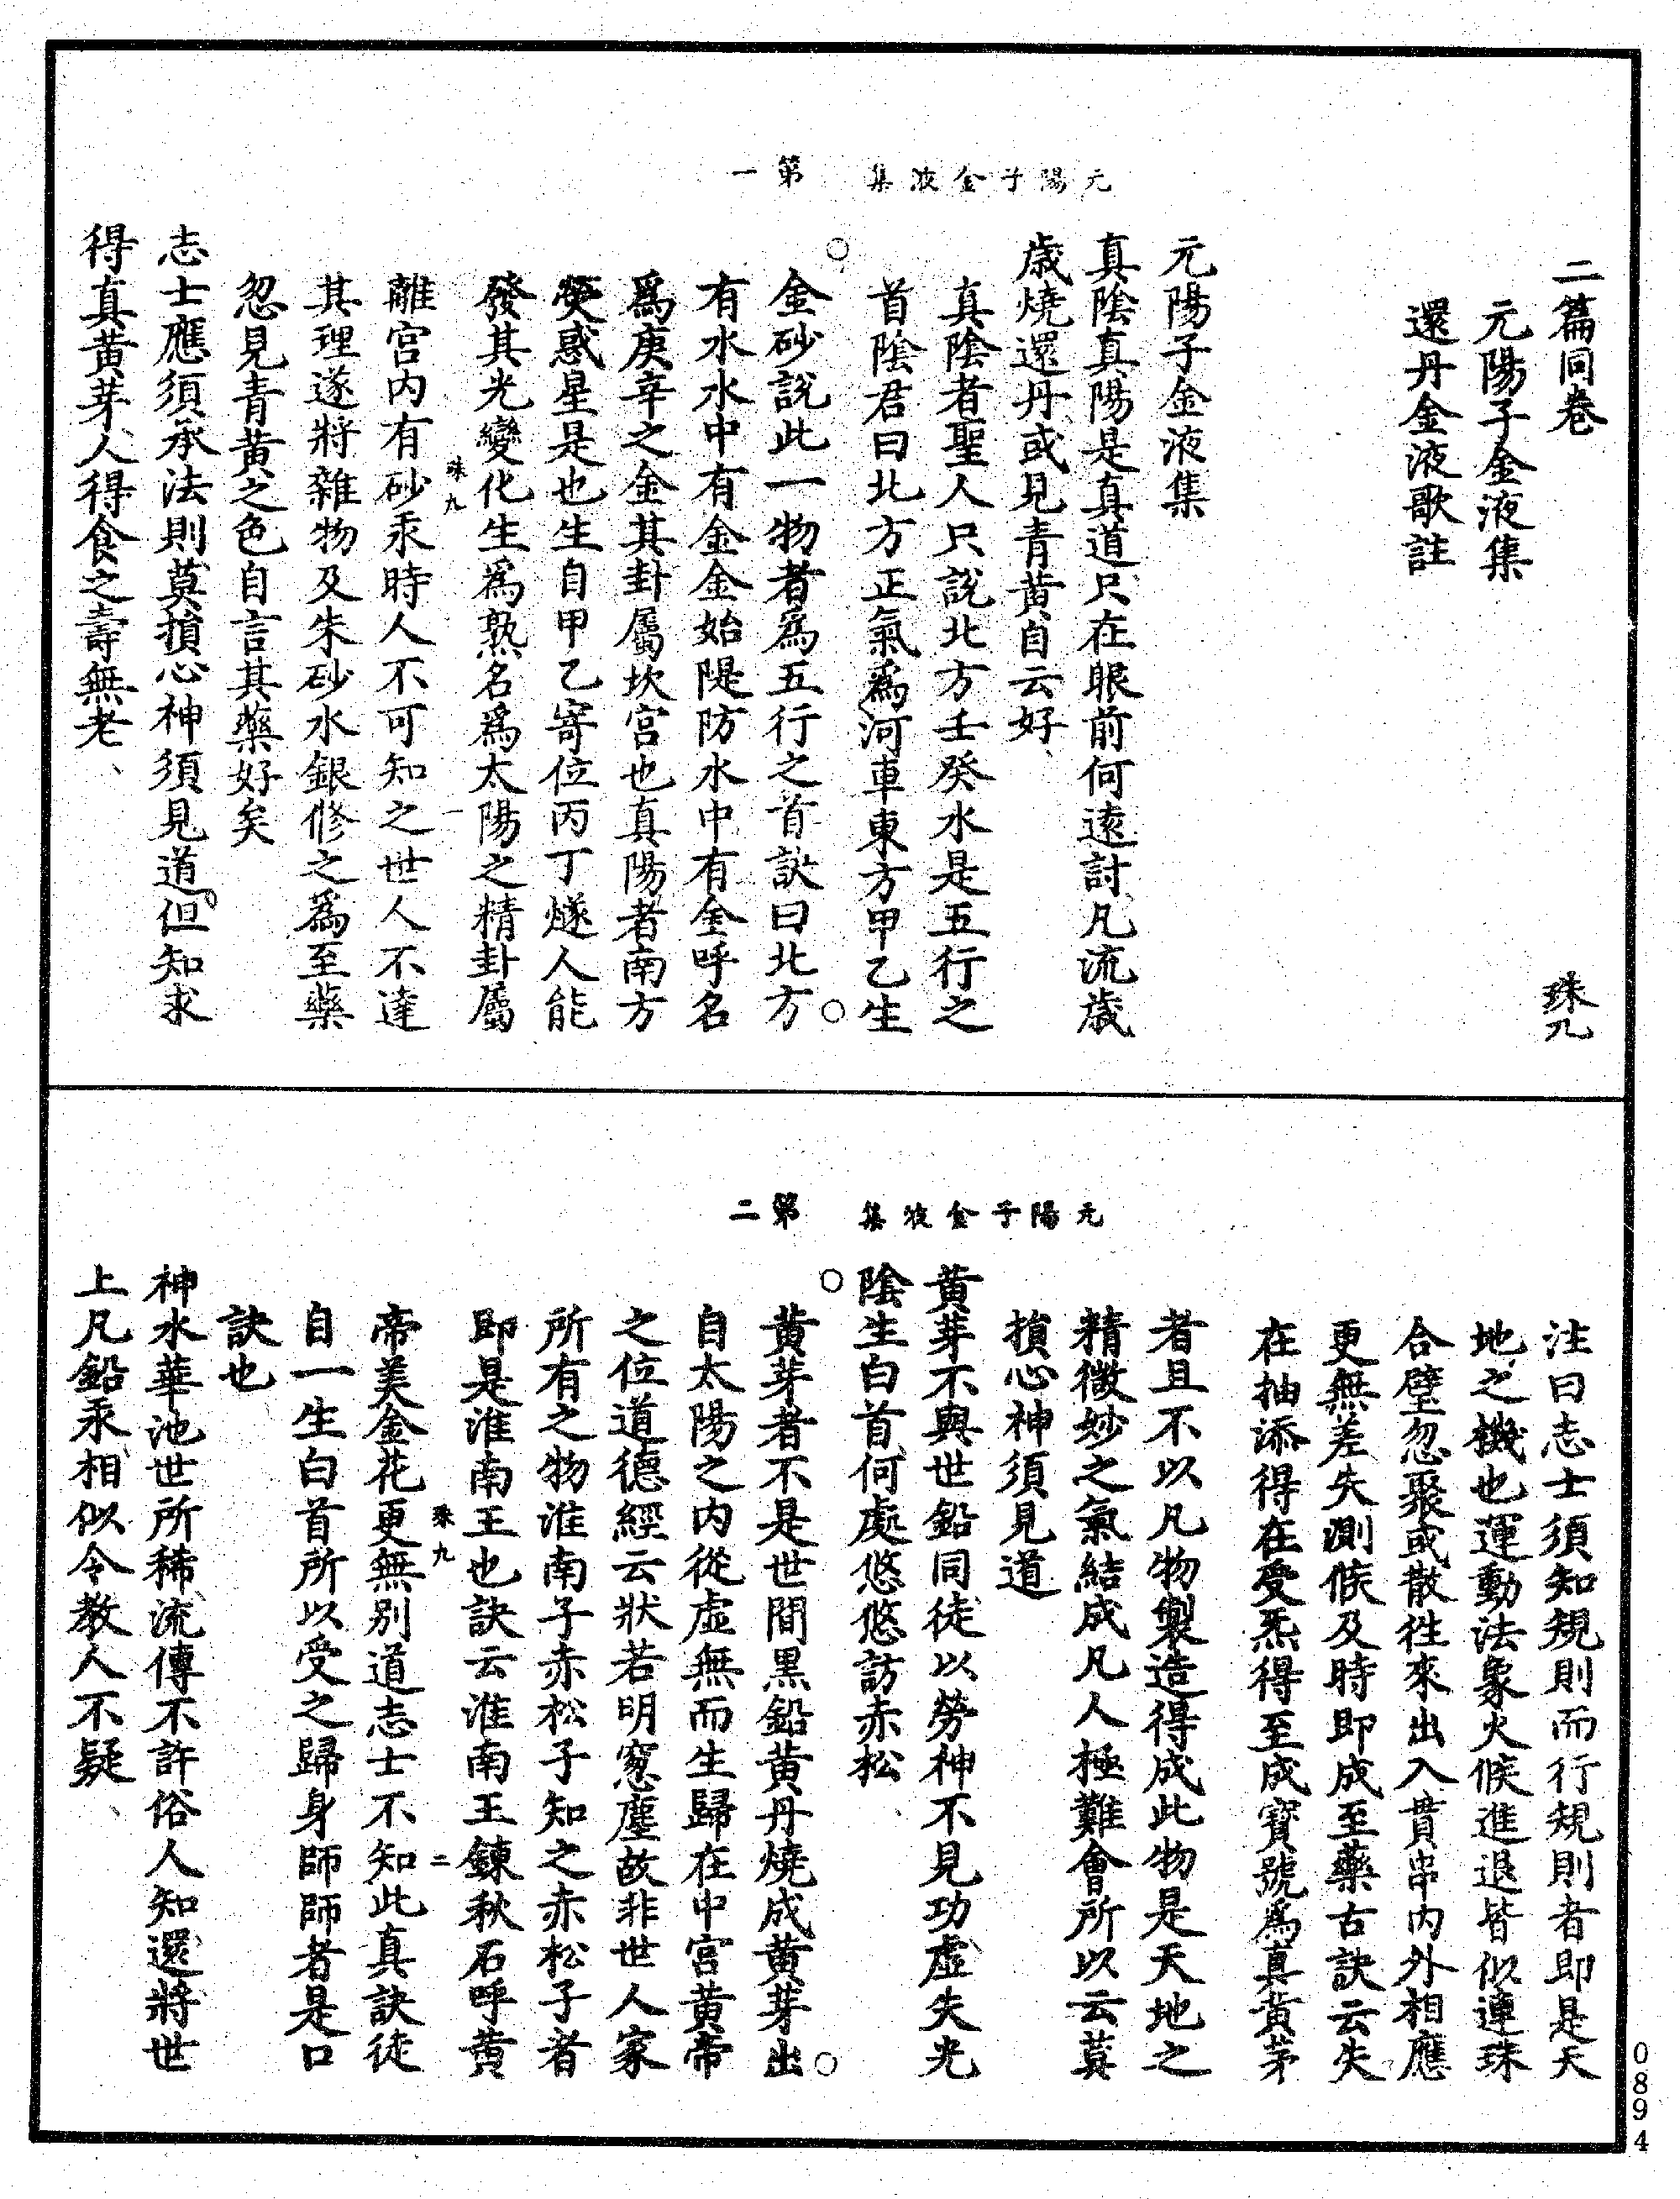 元陽子金液集　第一
二篇同卷　珠九
元陽子金液集
還丹金液歌註
元陽子金液集
真陰真陽是真道只在眼前何遠討凡流歲
歲燒還丹或見青黃自云好
真陰者聖人只說北方壬癸水是五行之
首陰君曰北方正氣為河車東方甲乙生
金砂說此一物者為五行之首訣曰北方
有水水中有金金始隄防水中有金呼名
為庚辛之金其卦屬坎宮也真陽者南方
熒惑星是也生自甲乙寄位丙丁燧人能
發其光變化生為熟名為太陽之精卦屬
珠九　一
離宮内有砂汞時人不可知之世人不達
其理遂將雜物及朱砂水銀修之為至藥
忽見青黃之色自言其藥好矣
志士應須承法則莫損心神須見道但知求
得真黃芽人得食之壽無老
元陽子金液集　第二
注曰志士須知規則而行規則者即是天
地之機也運動法象火候進退皆似連珠
合璧忽聚或散往來出入貫串内外相應
更無差失測候及時即成至藥古訣云失
在抽添得在受炁得至成寶號為真黃茅
者且不以凡物製造得成此物是天地之
精微妙之氣結成凡人極難會所以云莫
損心神須見道
黃芽不與世鉛同徒以勞神不見功虛失光
陰生白首何處悠悠訪赤松
黃芽者不是世間黑鉛黃丹燒成黃芽出
自太陽之内從虛無而生歸在中宮黃帝
之位道德經云狀若明窻塵故非世人家
所有之物淮南子赤松子知之赤松子者
即是淮南王也訣云淮南王鍊秋石呼黃
珠九　二
帝美金花更無別道志士不知此真訣徒
自一生白首所以受之歸身師師者是口
訣也
神水華池世所稀流傳不許俗人知還將世
上凡鉛汞相似令教人不疑
0894